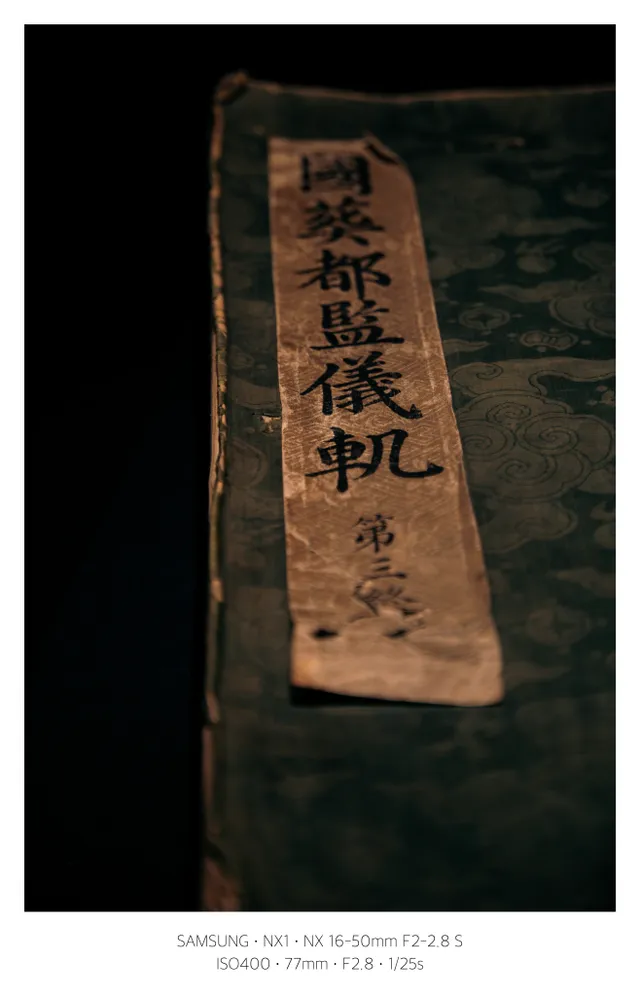 國葬都監儀軌
第三
SAMSUNG · NX1 · NX 16-50mm F2-2.8 S
ISO400 · 77mm · F2.8 · 1/25s